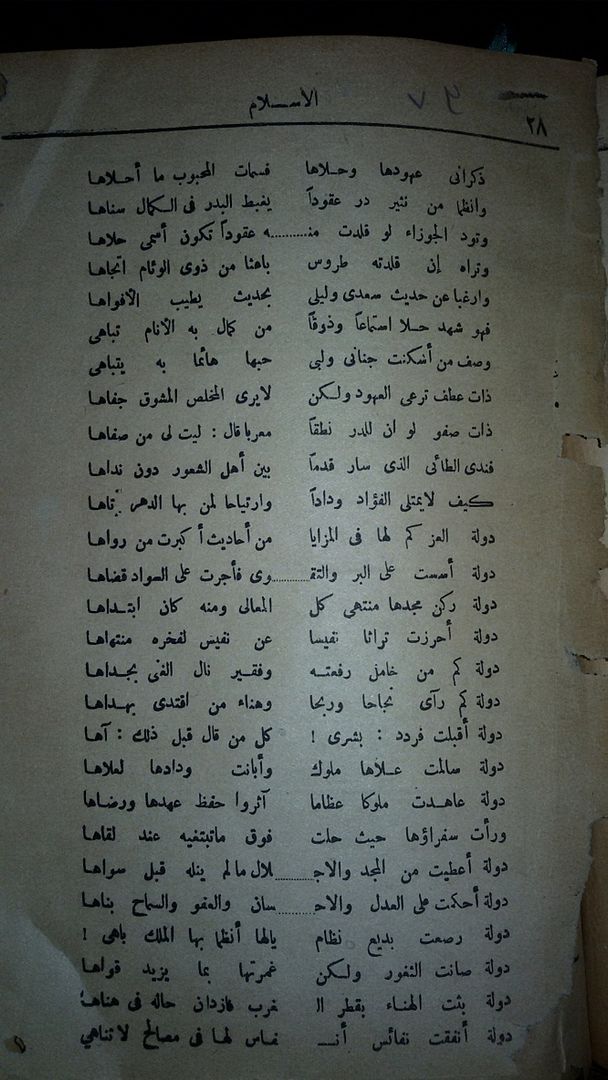 ٢٨
الاسلام
ذكرانى عهودها وحلاها فسمات المحبوب ما أحلاها
وانظما من نثير در عقوداً يغبط البدر فى الكمال سناها
وتود الجوزاء لو قلدت منـ..........ـه عقوداً تكون أسمى حلاها
وتراه إن قلدته طروس باهثا من ذوى الوئام اتجاها
وارغبا عن حديث سعدى وليلى بحديث يطيب الأفواها
فهو شهد حلا استماعاً وذوقاً من كمال به الأنام تباهى
وصف من أسكنت جنانى ولبى حبها هائما به يتباهى
ذات عطف ترعى العهود ولكن لايرى المخلص المشوق جفاها
ذات صفو لو ان للدر نطقاً معربا قال : ليت لى من صفاها
فندى الطائى الذى سار قدماً بين أهل الشعور دون نداها
كيف لايمتلى الفؤاد وداداً وارتياحا لمن بها الدهر تاها
دولة العز كم لها فى المزايا من أحاديث أكبرت من رواها
دولة أسست على البر والتقـ..........ـوى فأجرت على السواد قضاها
دولة ركن مجدها منتهى كل المعالى ومنه كان ابتداها
دولة أحرزت تراثا نفيسا عن نفيس لفخره منتهاها
دولة كم من خامل رفعته وفقير نال الغنى بجداها
دولة كم رآى نجاحا وربحا وهناء من اقتدى بهداها
دولة أقبلت فردد : بشرى ! كل من قال قبل ذلك : آها
دولة سالمت علاها ملوك وأبانت ودادها لعلاها
دولة عاهدت ملوكا عظاما آثروا حفظ عهدها ورضاها
ورأت سفراؤها حيث حلت فوق ماتبتغيه عند لقاها
دولة أعطيت من المجد والاجـ..........ـلال مالم ينله قبل سواها
دولة أحكمت على العدل والاحـ..........ـسان والعفو والسماح بناها
دولة رصعت بديع نظام يالها أنظما بها الملك باهى !
دولة صانت الثغور ولكن غمرتها بما يزيد قواها
دولة بثت الهناء بقطر الـ غرب فازدان حاله فى هناها
دولة أنفقت نفائس أنـ ـفاس لها فى مصالح لاتناهي